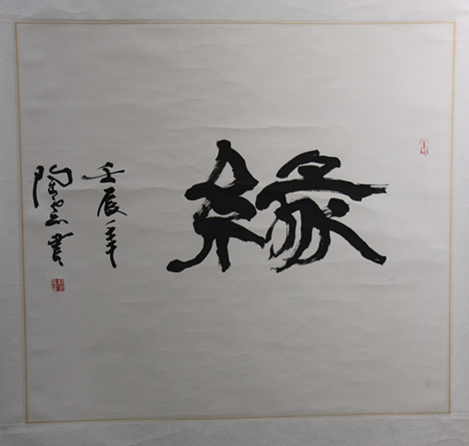 緣
壬辰年
陶宏書